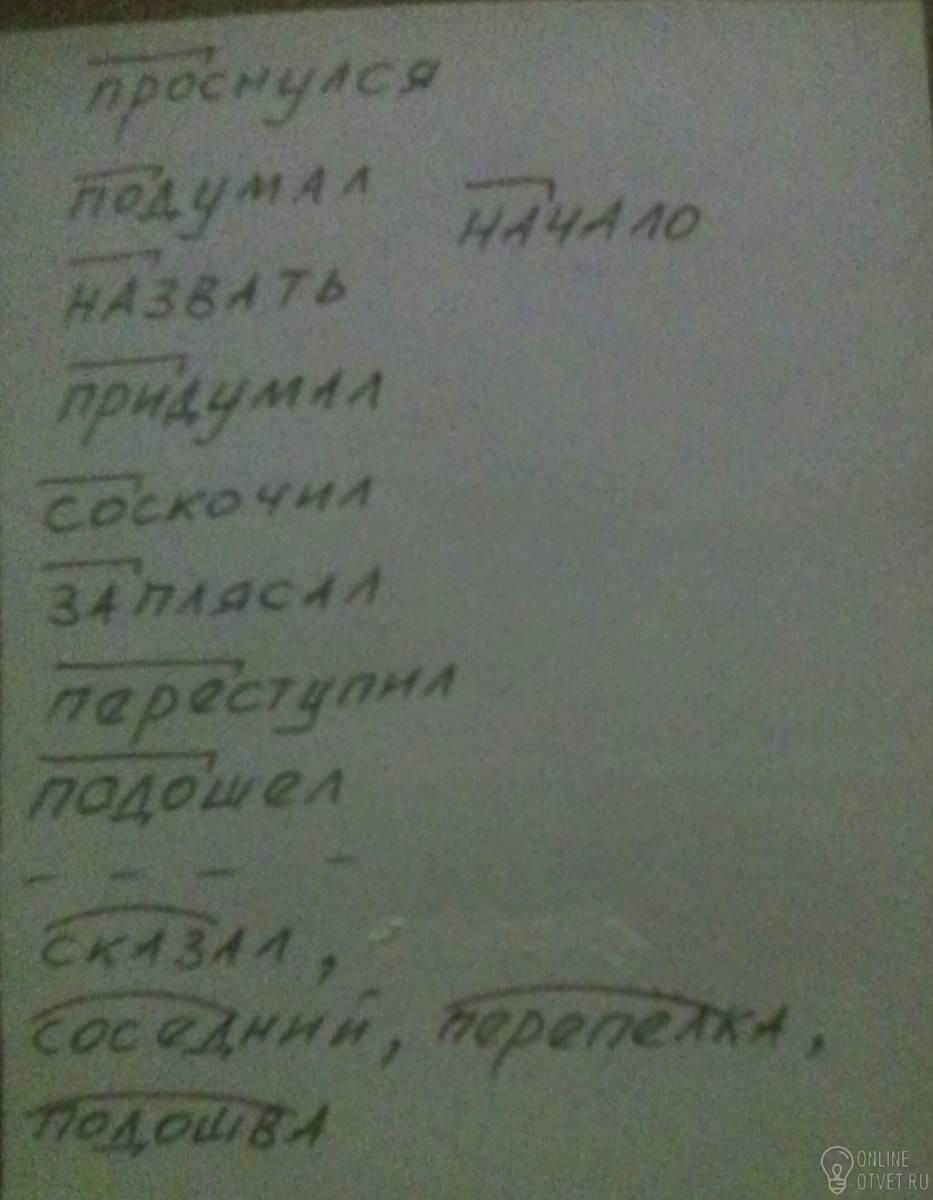 проснулся
подумал
начало
назвать
придумал
соскочил
заплясал
переступил
подошел
- - - -
сказал,
соседний, перепелка,
подошва
ONLINE
OTVET.RU